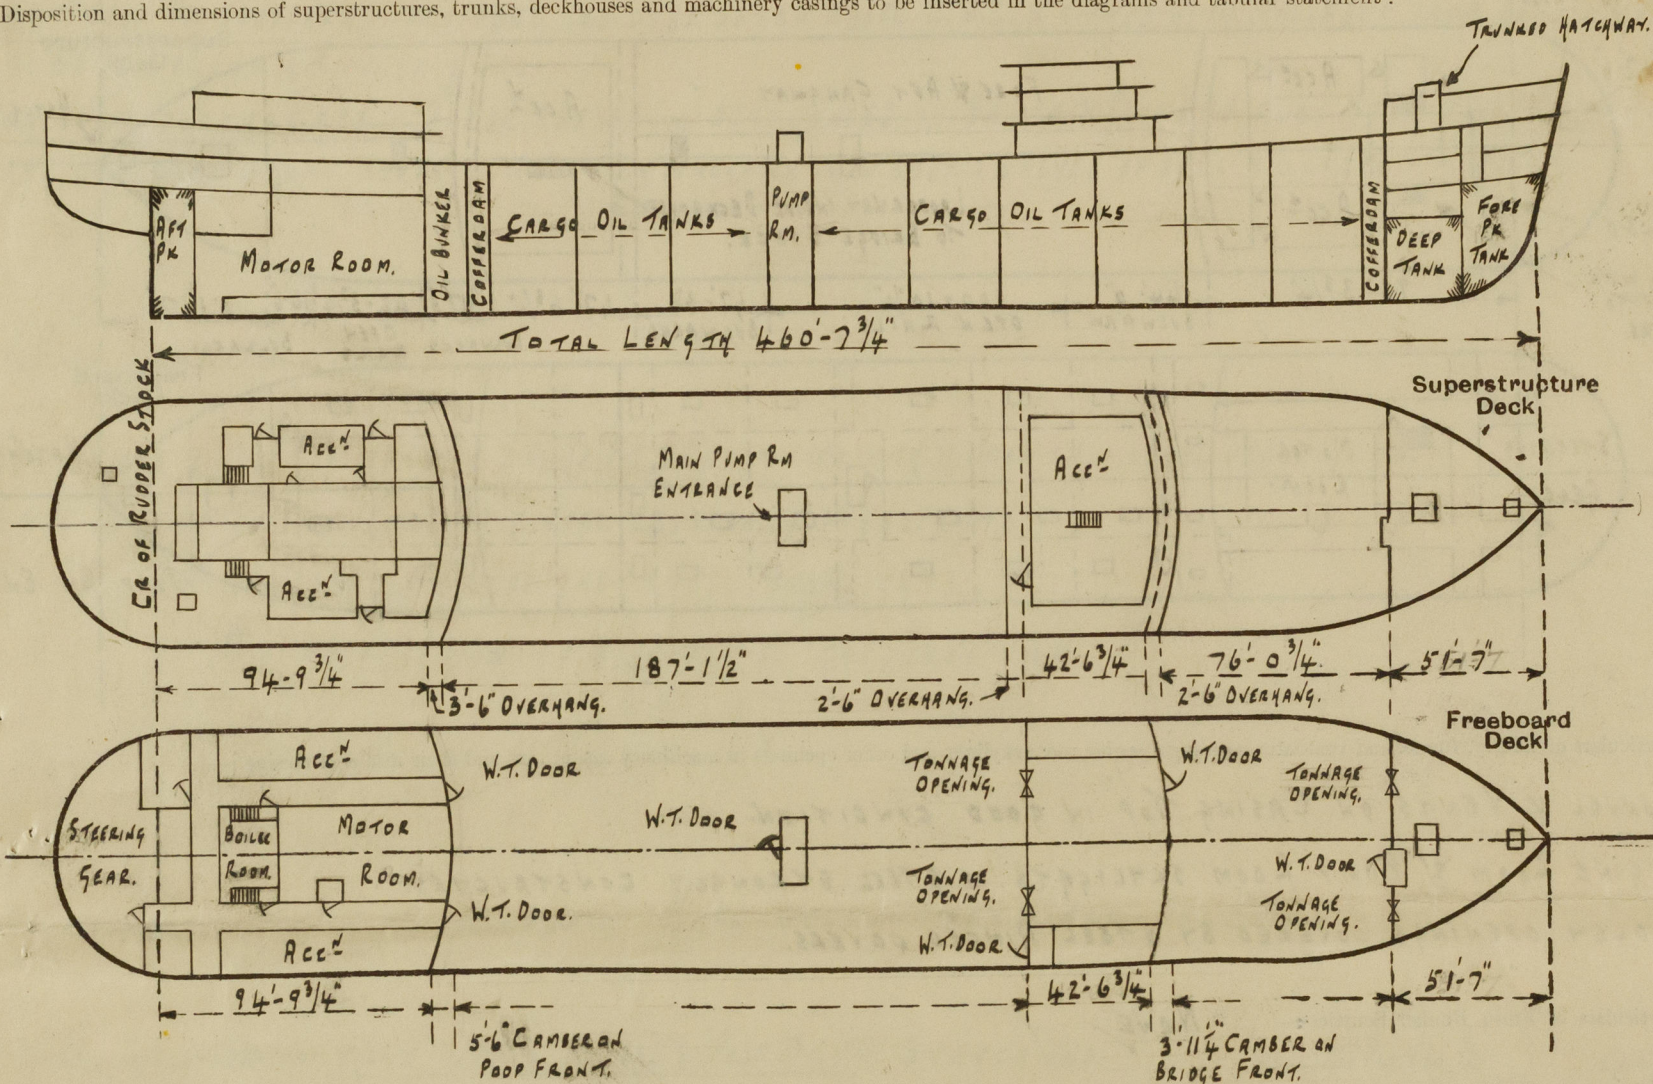 Disposition and dimensions of superstructures, trunks, deckhouses and machinery casings to be inserted in the diagrams and tabular statement:
TRUNKED HATCHWAY.
AFT
PK
MOTOR ROOM.
OIL BUNKER
COFFERDAM
CARGO OIL TANKS
PUMP
RM.
CARGO OIL TANKS
COFFERDAM
DEEP
TANK
FORE
PK
TANK
TOTAL LENGTH 460'-7 3/4"
CR OF RUDDER STOCK
Superstructure
Deck
ACCN
ACCN
MAIN PUMP RM
ENTRANCE
ACCN
94-9 3/4"
3'-6" OVERHANG.
187'-1 1/2"
2'-6" OVERHANG.
42'-6 3/4"
76'-0 3/4"
2'-6" OVERHANG.
51'-7"
Freeboard
Deck
STEERING
GEAR.
ACCN
BOILER
ROOM.
MOTOR
ROOM.
ACCN
W.T. DOOR
W.T. DOOR.
W.T. DOOR
TONNAGE
OPENING.
TONNAGE
OPENING.
W.T. DOOR
W.T. DOOR
TONNAGE
OPENING.
W.T. DOOR
TONNAGE
OPENING.
94'-9 3/4"
5'-6" CAMBER ON
POOP FRONT.
42'-6 3/4"
3'-11 1/4" CAMBER ON
BRIDGE FRONT.
51'-7"